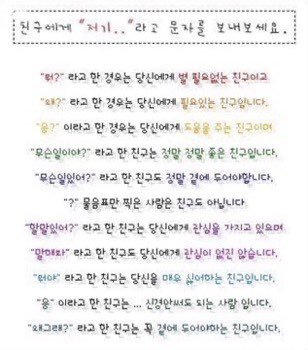 친구에게 "저기.." 라고 문자를 보내보세요.
"뭐?" 라고 한 경우는 당신에게 별 필요없는 친구이고
"왜?" 라고 한 경우는 당신에게 필요있는 친구입니다.
"응?" 이라고 한 경우는 당신에게 도움을 주는 친구이며
"무슨일이야?" 라고 한 친구는 정말 정말 좋은 친구입니다.
"무슨일있어?" 라고 한 친구도 정말 곁에 두어야합니다.
"?" 물음표만 찍은 사람은 친구도 아닙니다
"할말있어?" 라고 한 친구는 당신에게 관심을 가지고 있으며
"말해봐" 라고 한 친구도 당신에게 관심이 없진 않습니다.
"뭐야" 라고 한 친구는 당신을 매우 싫어하는 친구입니다.
"응" 이라고 한 친구는 ... 신경안써도 되는 사람 입니다.
"왜그래?" 라고 한 친구는 꼭 곁에 두어야하는 친구입니다.